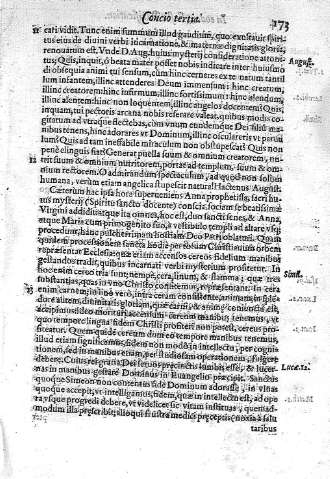 Concio tertia. 273
11 cati vidit. Tunc enim summum illud gaudium, quo exestuat spiri-
tus eius de divini verbi incarnatione, & maternæ dignitatis gloria,
renovatum est. Vnde D. Aug. huius mysterij consideratione attoni-
tus; Quis, inquit, ô beata mater posset nobis indicare inter huiusmo
di obsequia animi qui sensum, cum hinc cerneres ex te natum tantil
lum infantem, hinc attenderes Deum immensum: hinc creatum,
illinc creatorem: hinc infirmum, illinc fortissimum: hinc alendum
illinc alentem: hinc non loquentem, illinc angelos docentem? Quis,
inquam, tui pectoris arcana nobis referare valeat, quibus modis co-
gitatum ad utraque flectebas, cum unum eundemque Dei filium
nibus tenens, hinc adorares ut Dominum, illinc osculareris ut parvu
lum? Quis ad tam ineffabile miraculum non obstupescat? Quis non
penè elinguis fiat? Generat puella suum & omnium creatorem,
12 trit suum & omnium nutritorem, portat ad templum, suum & om-
nium rectorem. O admirandum spectaculum, ad quod non solum
humana, verùm etiam angelica stupescit natura! Hactenus August.
August.
Cæterùm hac ipsa hora superveniens Anna prophetissa, sacri hu-
ius mysterij (Spiritu sancto docente) conscia, sociam se beatissimæ
Virgini addidit: atque ita omnes, hoc est, duo sancti senes, & Anna,
atque Maria cum primogenito suo, à vestibulo templi ad altare usq;
procedunt, hanc pulcherrimam hostiam Deo Patri oblaturi. Quam
quidem processionem sancta hodie per totum Christianum orbem
repræsentat Ecclesia: quæ etiam accensos cereos fidelium manibus
gestandos tradit, quibus incarnati verbi mysterium profitetur. In
hoc enim cereo tria sunt; nempe, cera, linum, & flamma; quæ tres
Simil.
substantias, quas in uno Christo confitemur, repræsentant. In cera
13 enim carnem, in lino verò, intra ceram consistente, animam, in splen-
dore
quo tempore lingua fidem Christi profiteri non potest, cereus pro-
fiteatur. Quem quidem cereum dum eo tempore manibus tenemus,
illud etiam significamus, fidem non modò in intellectu, per cogni-
tionem, sed in manibus etiam, per studiosam operationem, fulgere
debere. Cuius rei gratia Dei servi præcinctis lumbis esse, & lucer-
nas in manibus gestare Dominus in Evangelio præcipit. Sanctus
Lucæ.12.
quoque Simeon non contentus fide Dominum adorasse, in ulnas
quoque accepit, ut intelligamus, fidem, quæ in intellectu est, ad ope
ra usque progredi debere, ut videlicet sic vitam instituas, quemad-
modum illa præscribit; alioqui frustra medici præceptis, noxia à salu
taribus